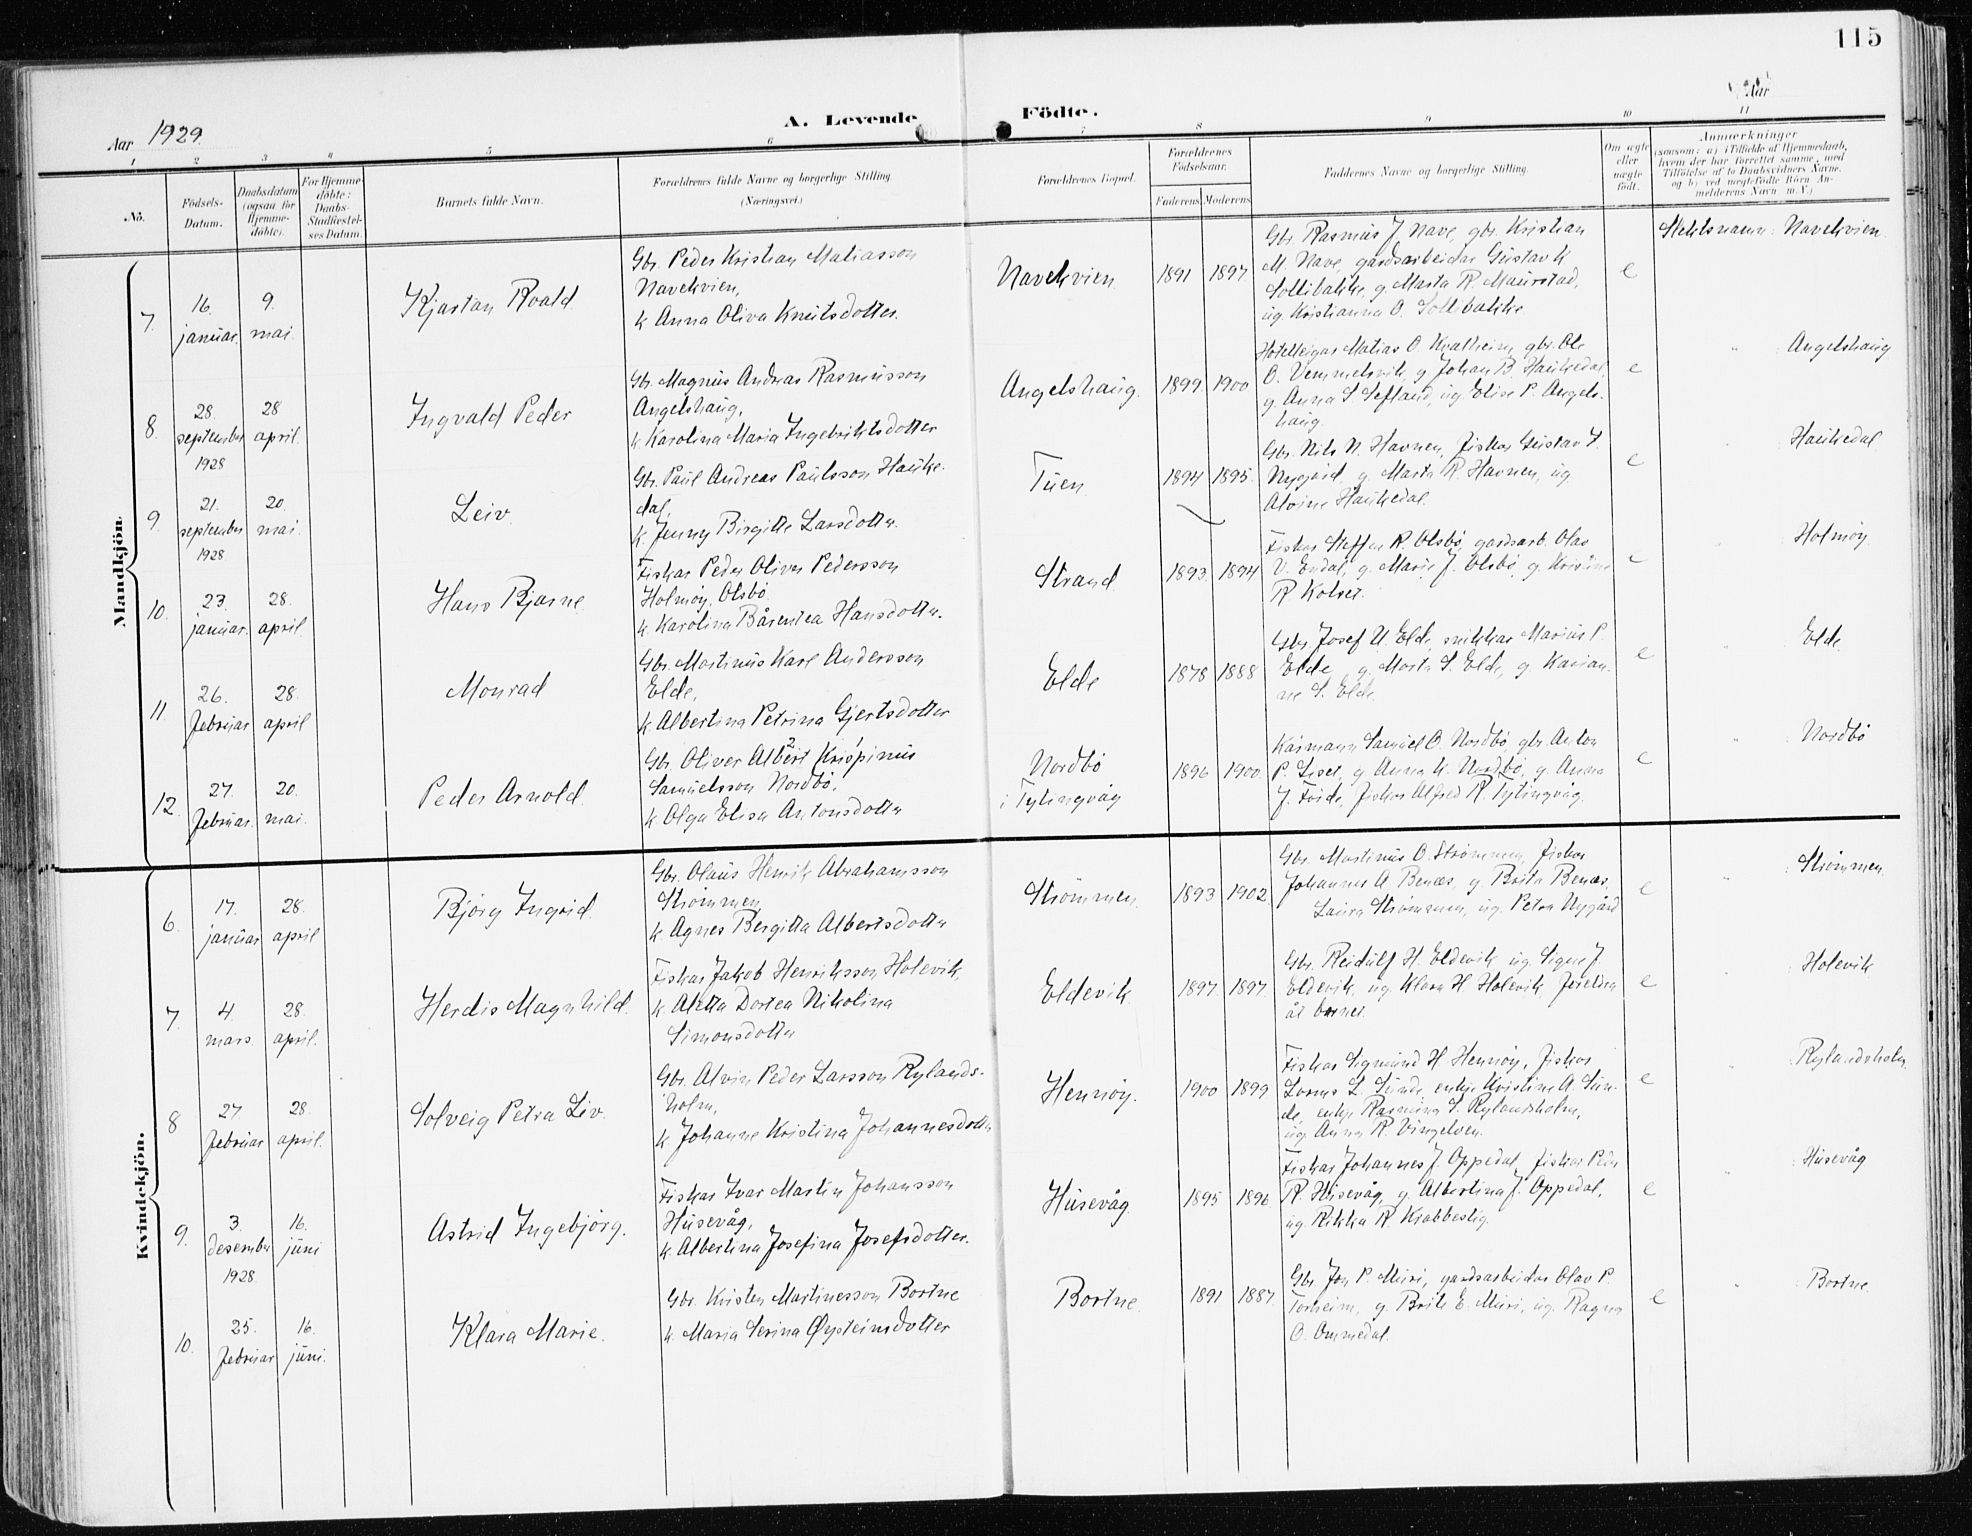 115
Aar 1929.
A. Levende Födte.
Aar
1 2 3 4 5 6 7 8 9 10 11
No.
Födsels-
Datum.
Daabsdatum
(ogsaa for
Hjemme-
döbte).
For Hjemme-
döbte:
Daabs-
Stadfæstel-
ses Datum.
Barnets fulde Navn.
Forældrenes fulde Navne og borgerlige Stilling.
(Næringsvei.)
Forældrenes Bopæl.
Forældrenes
Födselsaar.
Faderens Moderens
Faddernes Navne og borgerlige Stilling.
Om ægte
eller
uægte
födt.
Anmærkninger
(saasom: a) i Tilfælde af Hjemmedaab,
hvem der har forrettet samme, med
Tilföielse af to Daabsvidners Navne,
og b) ved uægtefödte Börn An-
melderens Navn m. V.)
Mandkjön.
7.
16.
januar.
9.
mai.
Kjartan Roald.
Gbr. Peder Kristian Matiasson
Navekvien,
k. Anna Oliva Knutsdotter.
Navekvien
1891 1897
Gbr. Rasmus J. Nave, gbr. Kristian
M. Nave, gardsarbeidar Gustav K
Sollibakke, g. Marta R. Maurstad,
ug. Kristianna O. Sollibakke
e
Slektsnamn: Navekvien.
8.
28.
september
1928
28
april.
Ingvald Peder
Gbr. Magnus Andreas Rasmusson
Angelshaug,
k. Karolina Maria Ingebriktsdotter
Angelshaug.
1899 1900
Hotelleigar Matias O. Kvalheim, gbr. Ole
O. Vemmelsvik, g. Johan B. Haukedal,
g. Anna S. Sefland, ug. Elise P. Angels-
haug.
e
" : Angelshaug
9.
21.
september
1928
20.
mai.
Leiv.
Gbr. Paul Andreas Paulsson Hauke-
dal,
k. Jenny Birgitte Larsdotter.
Tuen
1894 1895.
Gbr. Nils N. Havnen, fiskar Gustav
Nygård, g. Marta R. Havnen, ug
Alvine Haukedal.
e
" Haukedal
10.
23.
januar.
28.
april.
Hans Bjarne
Fiskar Peder Oliver Pedersson
Holmøy, Olsbø.
k. Karolina Bårentea Hansdotter.
Strand
1893 1894
Fiskar Steffen R. Olsbø, gardsarb. Olav
V. Endal, g. Marie J. Olsbø, g.
R. Kolset.
e
" Holmøy.
11.
26.
februar
28.
april
Monrad
Gbr. Martinus Karl Andersson
Elde,
k. Albertina Petrina Gjertsdotter
Elde
1878 1888
Gbr. Josef U. Elde, snikkar Marius P.
Elde, g. Marta S. Elde, g. Karian-
ne S. Elde.
e
" Elde.
12.
27.
februar.
20.
mai.
Peder Arnold.
Gbr. Oliver Albert Krispinus
Samuelsson Nordbø,
k. Olga Elisa Antonsdotter
Nordbø
i Tytingvåg
1896 1900
Kårmann Samuel O. Nordbø, gbr. Anton
P. Liset, g. Anna K. Nordbø, g. Anna
J. Førde, fiskar Alfred R. Tytingvåg.
e
" Nordbø
Kvindekjön.
6.
17.
januar
28.
april
Bjørg Ingrid.
Gbr. Olaus Henrik Abrahamsson
Strømmen,
k. Agnes Bergitta Albertsdotter
Strømmen.
1893 1902
Gbr. Martinus O. Strømmen, fiskar
Johannes A. Benæs, g. Brita Benæs,
Laura Strømmen, ug. Petra Nygård
e
" : Strømmen.
7.
4.
mars.
28.
april.
Herdis Magnhild.
Fiskar Jakob Henriksson Holevik,
k. Aletta Dortea Nikolina
Simonsdotter
Eldevik
1897 1897
Gbr. Reidulf H. Eldevik, ug. Signe J.
Eldevik, ug. Klara H. Holevik, foreldra
åt barnet.
e
" : Holevik
8
27.
februar
28.
april.
Solveig Petra Liv.
Gbr. Alvin Peder Larsson Rylands-
holm,
k. Johanne Kristina Johannesdotter
Hennøy.
1900 1899
Fiskar Sigmund H. Hennøy, fiskar
L. Sunde, enkje Kristine A. Sun-
de, enkje Rasmina S. Rylandsholm,
ug. Anna R. Vingelven.
e
" : Rylandsholm.
9.
3.
desember
1928.
16.
juni
Astrid Ingebjørg.
Fiskar Ivar Martin Johansson
Husevåg,
k. Albertina Josefina Josefsdotter.
Husevåg.
1895 1896
Fiskar Johannes J. Oppedal, fiskar Peder
R. Husevåg, g. Albertina J. Oppedal,
ug. Rikka R. Krabbestig.
e
" : Husevåg
10.
25.
februar
16.
juni.
Klara Marie.
Gbr. Kristen Martinesson Bortne
k. Maria Serina Øysteinsdotter
Bortne.
1891 1887.
Gbr. Jon P. Muri, gardsarbeidar Olav P.
Torheim, g. Brite E. Muri, ug. Ragna
O. Ommedal.
e
" : Bortne.